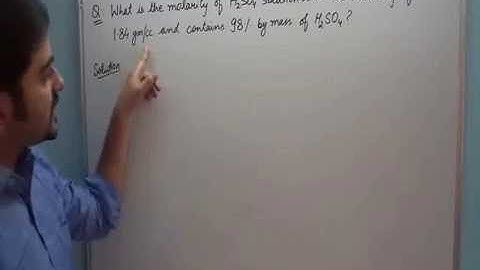 Q. What is the molarity of H₂SO₄
1.84 gm/cc and contains 98% by mass of H₂SO₄?
Solution